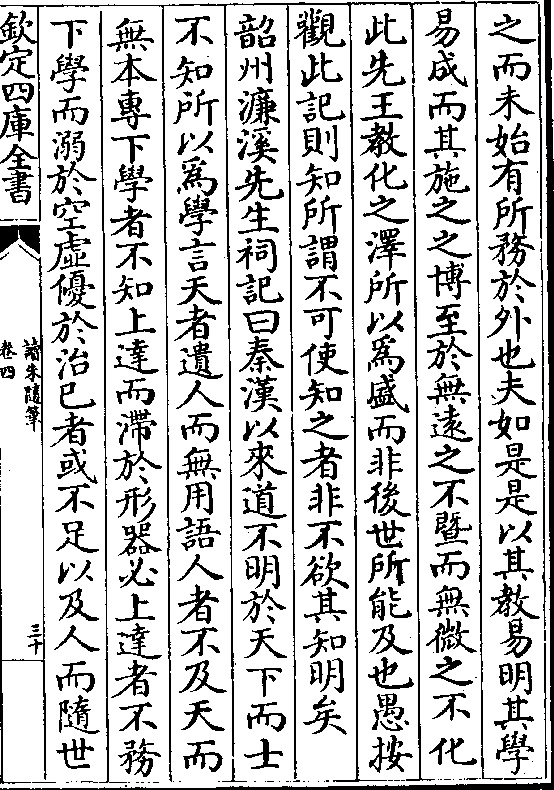 之而未始有所務於外也夫如是是以其教易明其學
易成而其施之之博至於無遠之不暨而無微之不化
此先王教化之澤所以爲盛而非後世所能及也愚按
觀此記則知所謂不可使知之者非不欲其知明矣
韶州濓溪先生祠記曰秦漢以來道不明於天下而士
不知所以爲學言天者遺人而無用語人者不及天而
無本專下學者不知上達而滯於形器必上達者不務
下學而溺於空虛優於治已者或不足以及人而隨世
欽定四庫全書
讀朱隨筆
卷四
三十